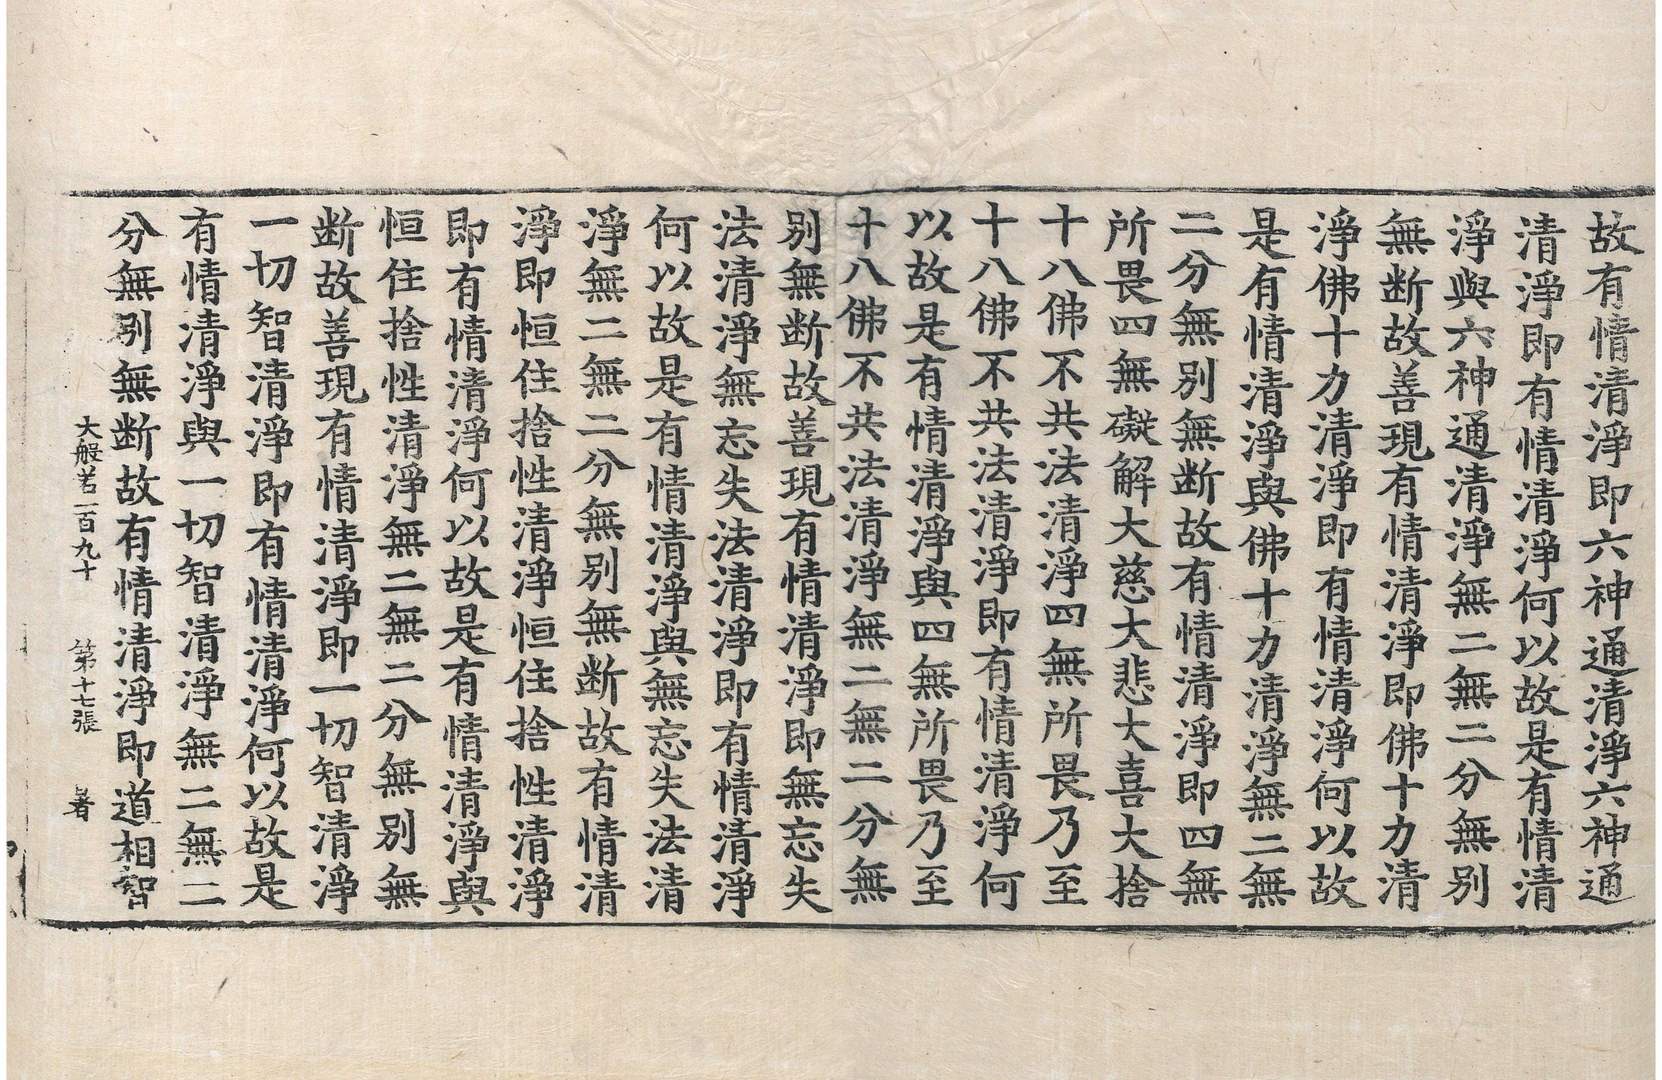 故有情清淨即六神通清淨六神通
清淨即有情清淨何以故是有情清
淨與六神通清淨無二無二分無別
無断故善現有情清淨即佛十力清
淨佛十力清淨即有情清淨何以故
是有情清淨與佛十力清淨無二無
二分無別無断故有情清淨即四無
所畏四無礙解大慈大悲大喜大捨
十八佛不共法清淨四無所畏乃至
十八佛不共法清淨即有情清淨何
以故是有情清淨與四無所畏乃至
十八佛不共法清淨無二無二分無
别無断故善現有情清淨即無忘失
法清淨無忘失法清淨即有情清淨
何以故是有情清淨與無忘失法清
淨無二無二分無别無断故有情清
淨即恒住捨性清淨恒住捨性清淨
即有情清淨何以故是有情清淨與
恒住捨性清淨無二無二分無別無
断故善現有情清淨即一切智清淨
一切智清淨即有情清淨何以故是
有情清淨與一切智清淨無二無二
分無別無断故有情清淨即道相智
大般若一百九十 第十七張 暑